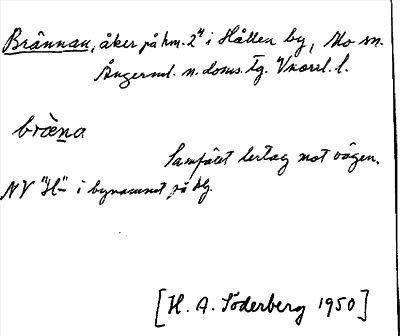 Brånnan, åker på hm. 2⁴ i Hållen by, Mo sn.
Ångerml. n. doms. tg. Vnorrl. l.
bræ̀na
Samfält lertag mot vägen,
NV "H-" i bynamnet på bl.
[H. A. Söderberg 1950]